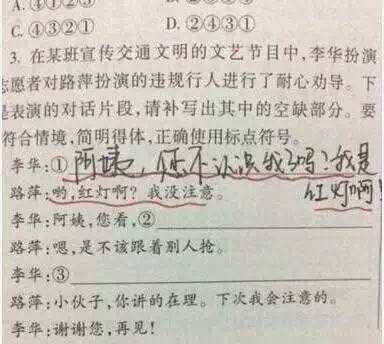 A.④①②③
C.④③②① D.②④③①
3. 在某班宣传交通文明的文艺节目中,李华扮演
志愿者对路萍扮演的违规行人进行了耐心劝导。下
是表演的对话片段,请补写出其中的空缺部分。要
符合情境,简明得体,正确使用标点符号。
李华:①阿姨,您不认识我了吗?我是
红灯啊!
路萍:哟,红灯啊?我没注意。
李华:阿姨,您看,②
路萍:嗯,是不该跟着别人抢。
李华:③
路萍:小伙子,你讲的在理。下次我会注意的。
李华:谢谢您,再见!